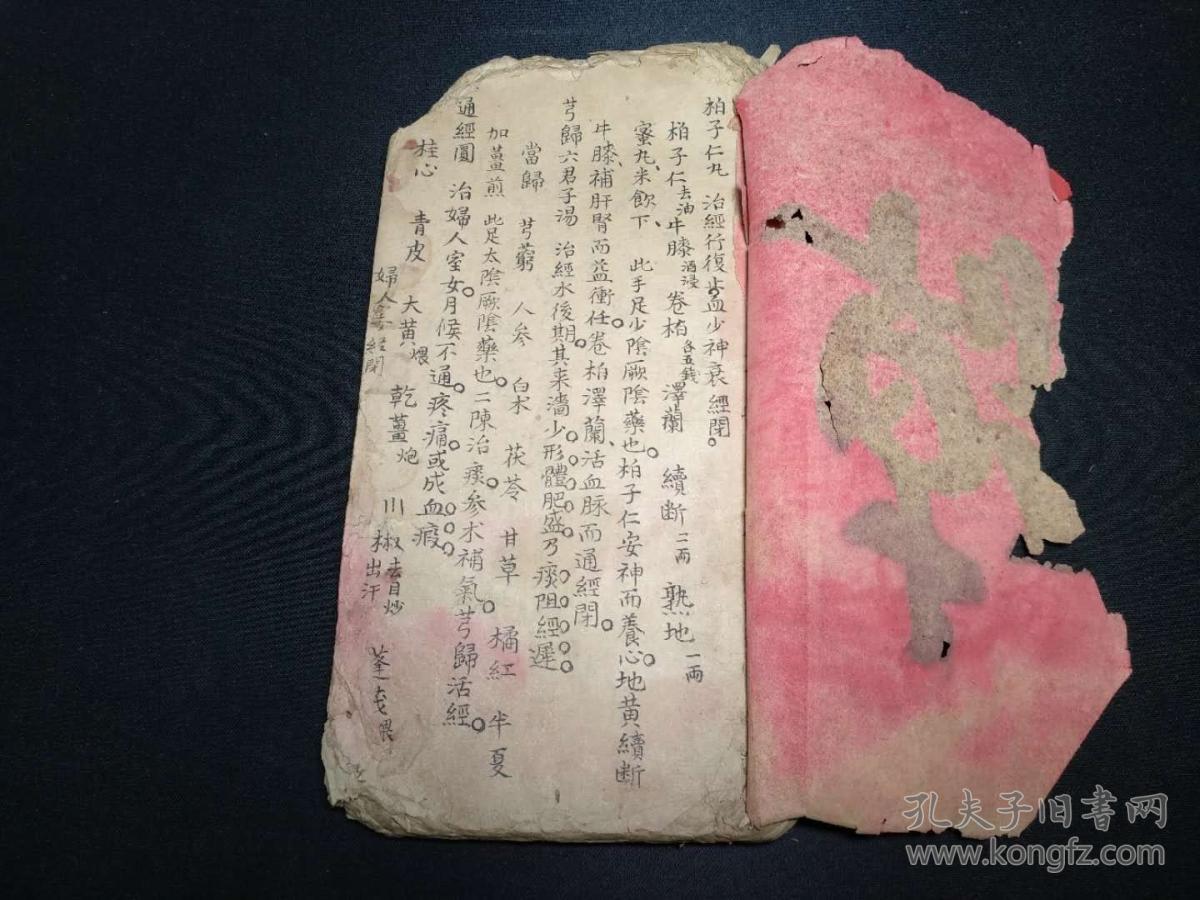 柏子仁丸 治經行復止血少神衰經閉。
柏子仁去油牛膝酒浸卷柏各五錢澤蘭 續斷二兩 熟地一兩
蜜丸、米飲下、 此手足少陰厥陰藥也。柏子仁安神而養心。地黃續斷
牛膝、補肝腎而益衝任。卷柏澤蘭、活血脉而通經閉。
芎歸六君子湯 治經水後期。其来濇少。形體肥盛。乃痰阻經遲。
當歸 芎藭 人參 白朮 茯苓 甘草。橘紅 半夏
加薑煎 此足太陰厥陰藥也。二陳治痰。参术補氣。芎歸活經。
通經圓 治婦人室女。月候不通。疼痛。或成血瘕。
桂心 青皮 大黃煨 乾薑炮 川椒去目炒出汗 蓬莪煨
婦人室經閉
孔夫子旧书网
www.kongfz.com